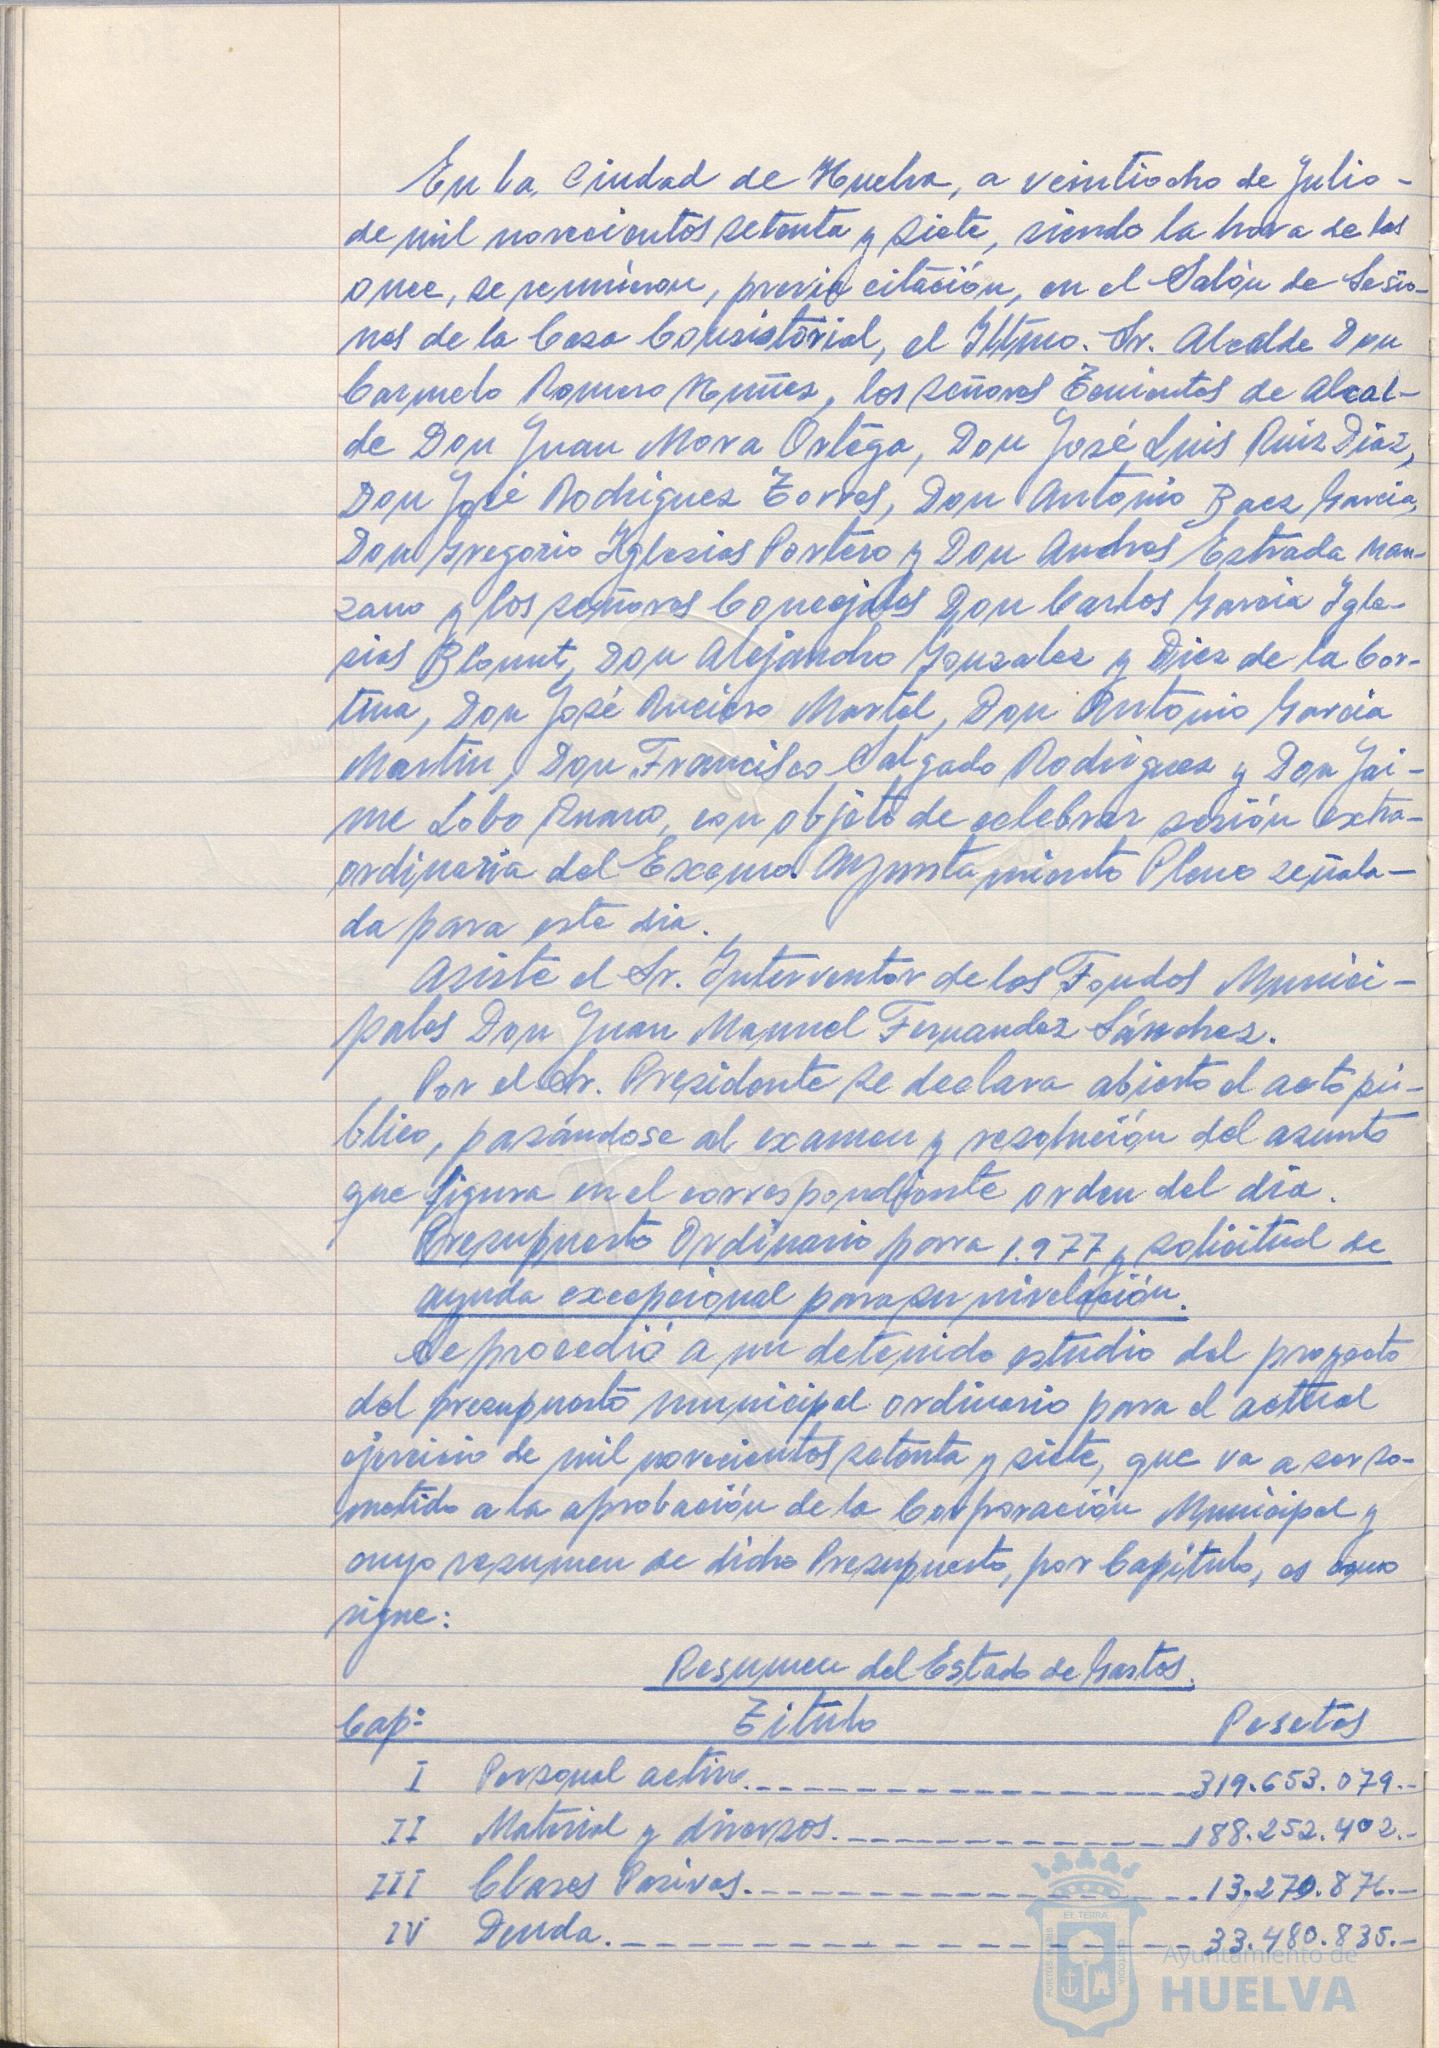 En la Ciudad de Huelva, a veintiocho de Julio -
de mil novecientos setenta y siete, siendo la hora de las
once, se reunieron, previa citación, en el Salón de Sesio-
nes de la Casa Consistorial, el Iltmo. Sr. Alcalde Don
Carmelo Romero Nuñez, los señores Tenientes de Alcal-
de Don Juan Mora Ortega, Don José Luis Ruiz Diaz,
Don José Rodriguez Torres, Don Antonio Baez Garcia,
Don Gregorio Yglesias Portero y Don Andres Estrada Man-
zano y los señores Concejales Don Carlos Garcia Ygle-
sias Blount, Don Alejandro Gonzalez y Diez de la Cor-
tina, Don José Ruciero Martel, Don Antonio Garcia
Martin, Don Francisco Salgado Rodriguez y Don Jai-
me Lobo Ruano, con objeto de celebrar sesión extra-
ordinaria del Excmo. Ayuntamiento Pleno señala-
da para este dia.
Asiste el Sr. Interventor de los Fondos Munici-
pales Don Juan Manuel Fernandez Sánchez.
Por el Sr. Presidente se declara abierto el acto pú-
blico, pasándose al examen y resolución del asunto
que figura en el correspondiente orden del dia.
Presupuesto Ordinario para 1.977 y solicitud de
ayuda excepcional para su nivelación.
Se procedió a un detenido estudio del proyecto
del presupuesto municipal ordinario para el actual
ejercicio de mil novecientos setenta y siete, que va a ser so-
metido a la aprobación de la Corporación Municipal y
cuyo resumen de dicho Presupuesto, por Capitulo, es como
sigue:
Resumen del Estado de Gastos.
Capº Titulo Pesetas
I Personal activo. 319.653.079.-
II Material y diversos. 188.252.402.-
III Clases Pasivas. 13.270.876.-
IV Deuda. 33.480.835.-
Ayuntamiento de
HUELVA